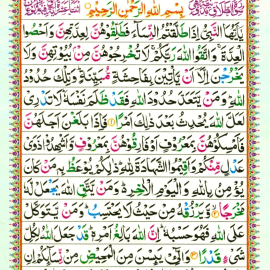 بِسْمِ اللهِ الرَّحْمٰنِ الرَّحِيْمِ
يٰٓاَيُّهَا النَّبِيُّ اِذَا طَلَّقْتُمُ النِّسَآءَ فَطَلِّقُوْهُنَّ لِعِدَّتِهِنَّ وَاَحْصُوا
الْعِدَّةَ ۚ وَاتَّقُوا اللهَ رَبَّكُمْ ۚ لَا تُخْرِجُوْهُنَّ مِنْۢ بُيُوْتِهِنَّ وَلَا
يَخْرُجْنَ اِلَّآ اَنْ يَّاْتِيْنَ بِفَاحِشَةٍ مُّبَيِّنَةٍ ؕ وَتِلْكَ حُدُوْدُ
اللهِ ؕ وَمَنْ يَّتَعَدَّ حُدُوْدَ اللهِ فَقَدْ ظَلَمَ نَفْسَهٗ ؕ لَا تَدْرِيْ
لَعَلَّ اللهَ يُحْدِثُ بَعْدَ ذٰلِكَ اَمْرًا ۝۱ فَاِذَا بَلَغْنَ اَجَلَهُنَّ
فَاَمْسِكُوْهُنَّ بِمَعْرُوْفٍ اَوْ فَارِقُوْهُنَّ بِمَعْرُوْفٍ وَّاَشْهِدُوْا ذَوَيْ
عَدْلٍ مِّنْكُمْ وَاَقِيْمُوا الشَّهَادَةَ لِلّٰهِ ؕ ذٰلِكُمْ يُوْعَظُ بِهٖ مَنْ كَانَ
يُؤْمِنُ بِاللهِ وَالْيَوْمِ الْاٰخِرِ ؕ وَمَنْ يَّتَّقِ اللهَ يَجْعَلْ لَّهٗ
مَخْرَجًا ۝۲ وَّيَرْزُقْهُ مِنْ حَيْثُ لَا يَحْتَسِبُ ؕ وَمَنْ يَّتَوَكَّلْ
عَلَى اللهِ فَهُوَ حَسْبُهٗ ؕ اِنَّ اللهَ بَالِغُ اَمْرِهٖ ؕ قَدْ جَعَلَ اللهُ لِكُلِّ
شَيْءٍ قَدْرًا ۝۳ وَالّٰٓـِٔيْ يَئِسْنَ مِنَ الْمَحِيْضِ مِنْ نِّسَآئِكُمْ اِنِ